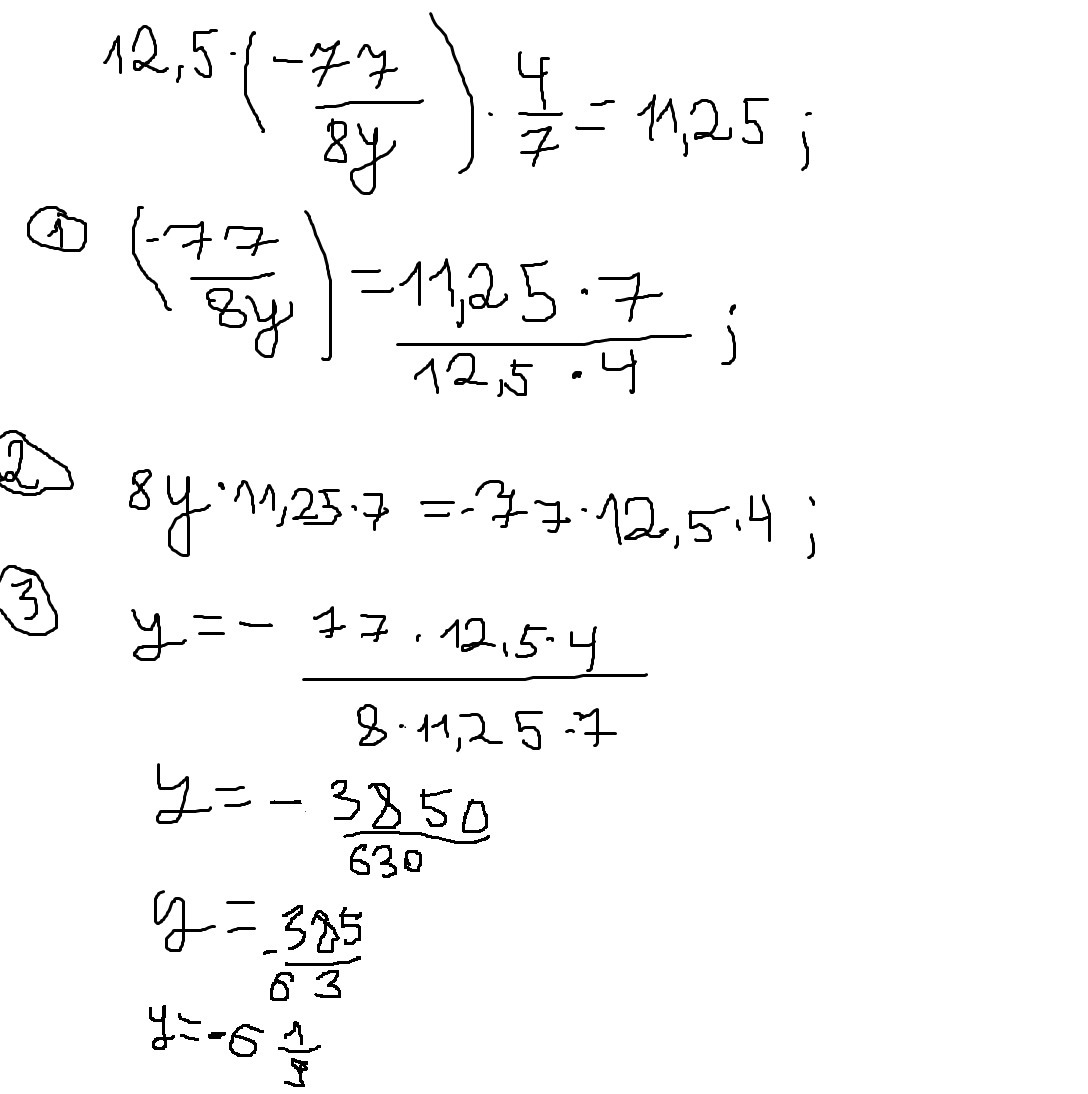 12,5·(-77/8y)·4/7=11,25;
1 (-77/8y)=11,25·7/12,5·4;
2 8y·11,25·7=-77·12,5·4;
3 y=-77·12,5·4/8·11,25·7
y=-3850/630
y=-385/63
y=-6 1/9